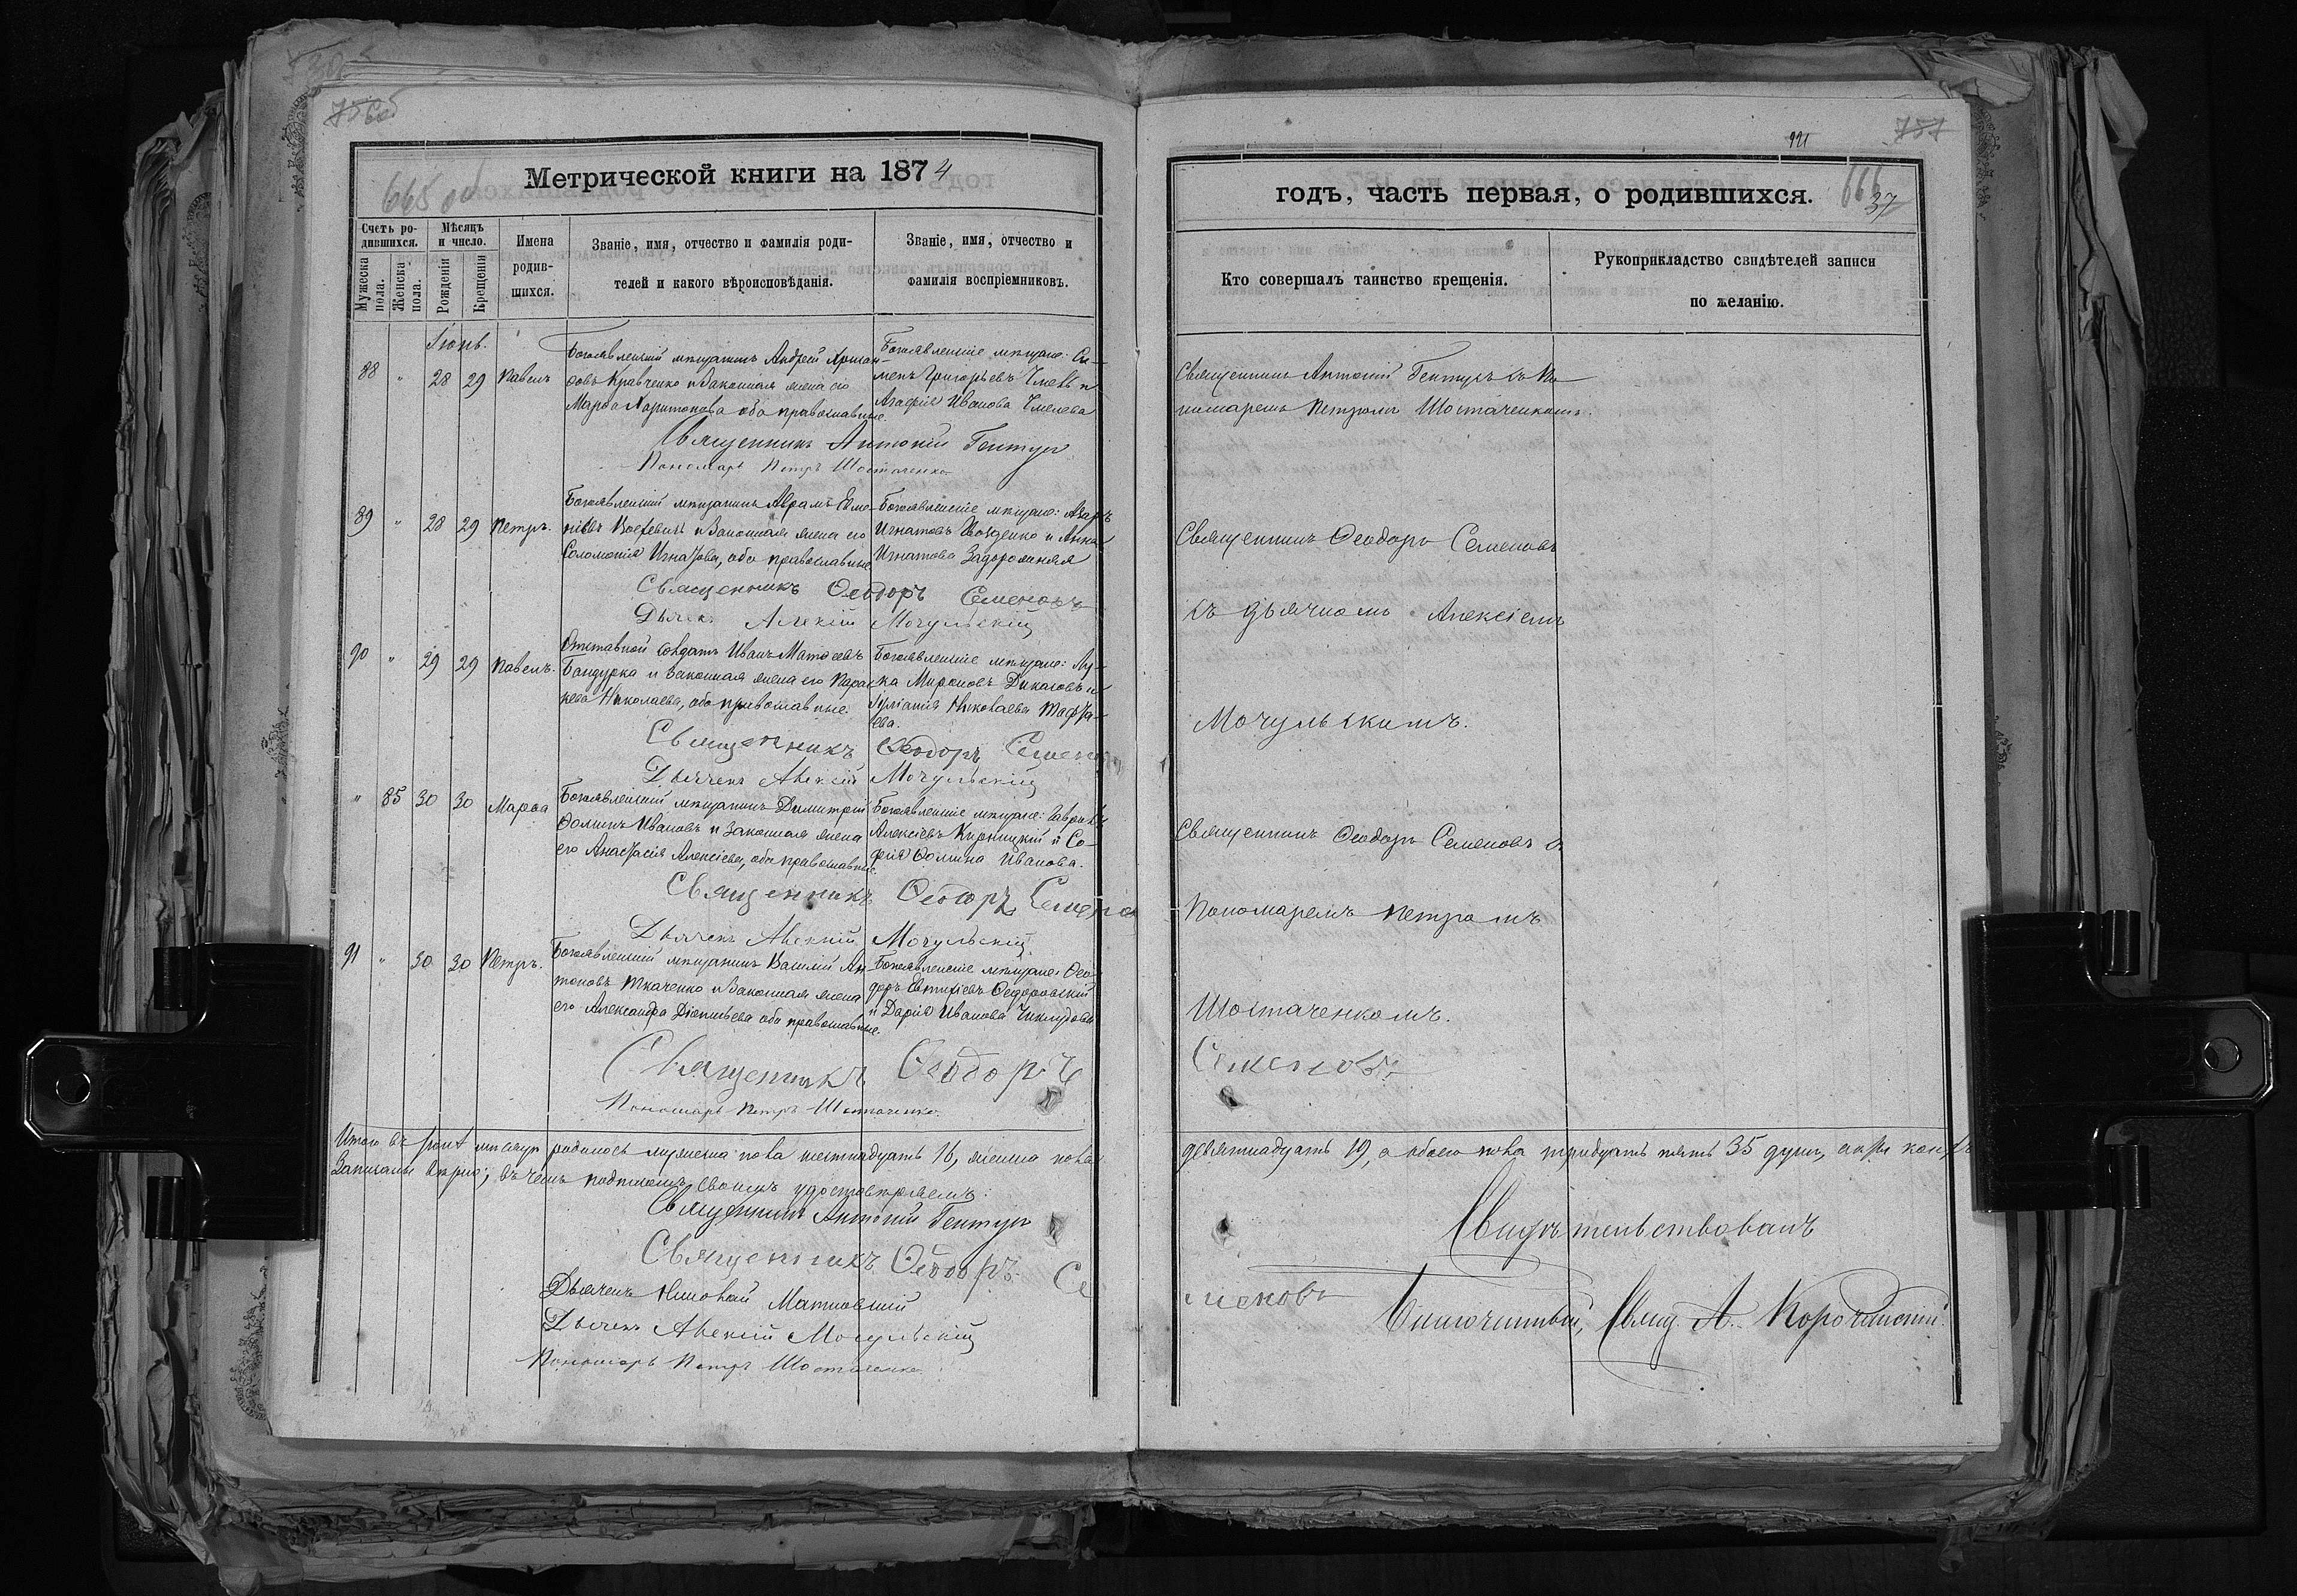 756об
665 об
Метрической книги на 1874
Счетъ ро-
дившихся.
Мужеска
пола.
Женска
пола.
Мѣсяцъ
и число.
Рожденія
Крещенія
Имена
родив-
шихся.
Званіе, имя, отчество и фамилія роди-
телей и какого вѣроисповѣданія.
Званіе, имя, отчество и
фамилія воспріемниковъ.
Іюнь.
88 " 28 29 Павелъ
Богоявленскій мѣщанинъ Андрей
Кравченко и законная жена его
Марѳа Харитонова оба православные.
Богоявленскіе мѣщане: Си-
менъ Григорьевъ и
Агафія Иванова
Священникъ Антоній Гентуръ
Пономарь Петръ Шостаченко
89 " 28 29 Петръ.
Богоявленскій мѣщанинъ Абрамъ
и законная жена его
Соломонія Игнатова, оба православные
Богоявленскіе мѣщане: Азаръ
Игнатовъ и Анна
Игнатова Задорожная
Священникъ Ѳеодоръ Семеновъ
Дьячекъ Алексій Мочульскій
90 " 29 29 Павелъ.
Отставной солдатъ Иванъ Матѳеевъ
Бандурка и законная жена его Парас-
кева Николаева, оба православные.
Богоявленскіе мѣщане: Лу-
ка Мироновъ и
Николаева
Священникъ Ѳеодоръ Семеновъ
Дьячекъ Алексій Мочульскій
" 85 30 30 Марѳа
Богоявленскій мѣщанинъ Димитрій
Ѳоминъ Ивановъ и законная жена
его Анастасія Алексіева, оба православные.
Богоявленскіе мѣщане: Гавріилъ
Алексіевъ и Со-
фія Ѳомина Иванова.
Священникъ Ѳеодоръ Семено
Дьячекъ Алексій Мочульскій
91 " 30 30 Петръ.
Богоявленскій мѣщанинъ Василій Ан-
тоновъ Ткаченко и законная жена
его Александра Діонисьева оба православные.
Богоявленскіе мѣщане: Ѳео-
доръ Евтихіевъ Ѳедоровскій
и Дарія Иванова
Священникъ Ѳеодоръ
Пономарь Петръ Шостаченко.
Итого въ Іюнѣ мѣсяцѣ родилось мужеска пола шестнадцать 16, женска пола
записаны вѣрно; въ чемъ подписомъ своимъ удостовѣряемъ:
Священникъ Антоній Гентуръ
Священникъ Ѳеодоръ Се
Дьячекъ
Дьячекъ Алексій Мочульскій
Пономарь Петръ Шостаченко.
757
921
666
37
годъ, часть первая, о родившихся.
Кто совершалъ таинство крещенія.
Рукоприкладство свидѣтелей записи
по желанію.
Священникъ Антоній Гентуръ съ По-
номаремъ Петромъ Шостаченкомъ.
Священникъ Ѳеодоръ Семеновъ
съ дьячкомъ Алексіемъ
Мочульскимъ.
Священникъ Ѳеодоръ Семеновъ съ
Пономаремъ Петромъ
Шостаченкомъ.
Семеновъ
девятнадцать 19, а обоего пола тридцать пять 35 душъ,
меновъ
Свидѣтельствовалъ
Благочинный, Свящ А.